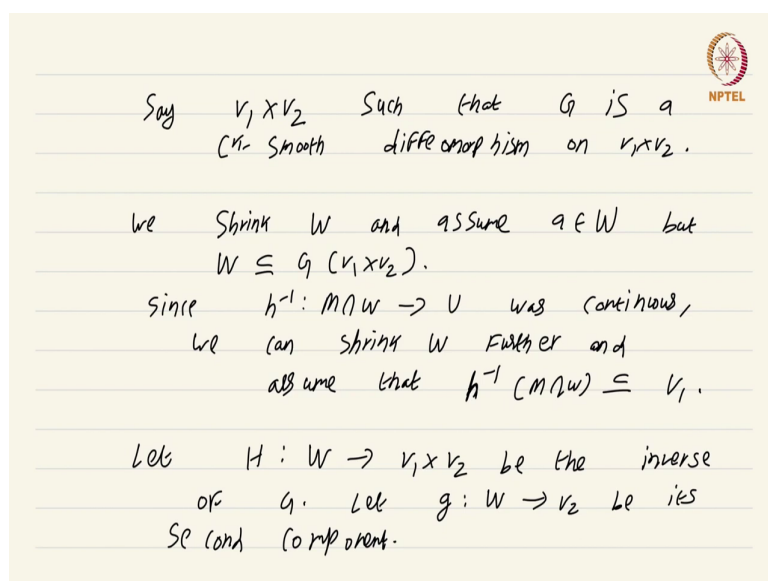 NPTEL
Say V₁ × V₂ Such that G is a
Cᵏ- Smooth diffeomorphism on V₁×V₂.
We Shrink W and assume a ∈ W but
W ⊆ G (V₁×V₂).
Since h⁻¹: M∩W → U was continuous,
we can shrink W Further and
assume that h⁻¹ (M∩W) ⊆ V₁.
Let H : W → V₁×V₂ be the inverse
of G. Let g : W → V₂ be its
Second Component.